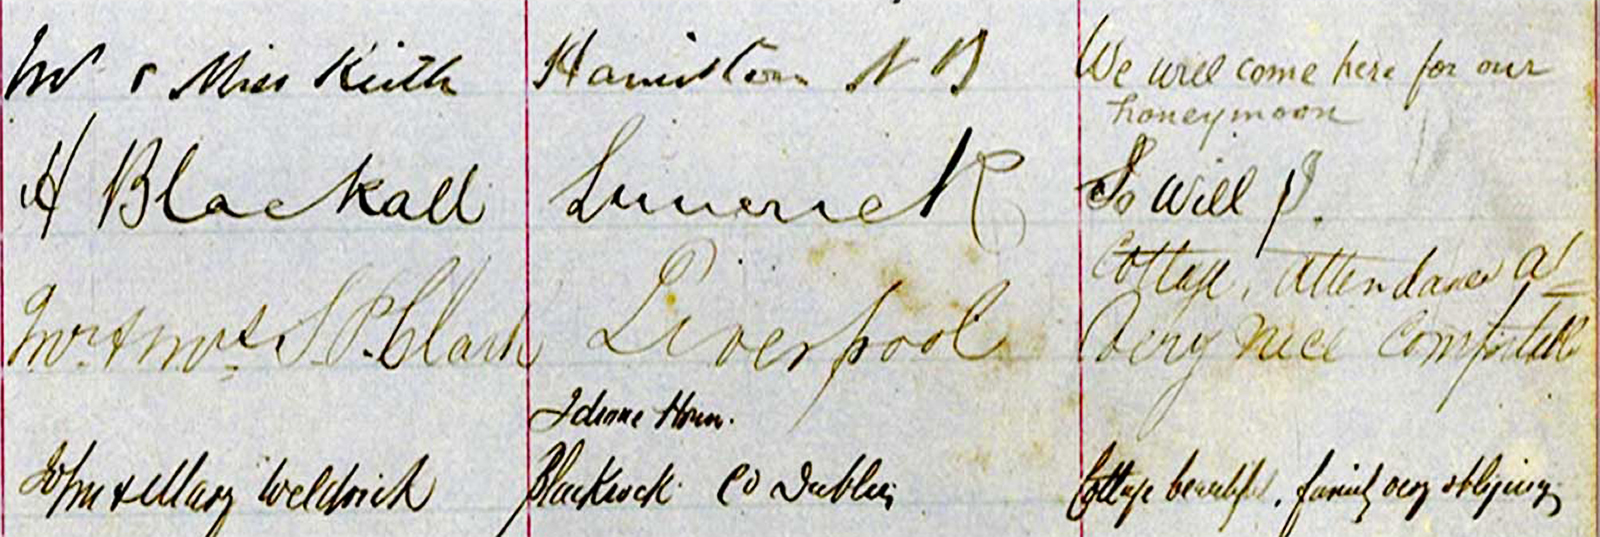 Mr & Miss Keith Hamilton N B We will come here for our
honeymoon
H Blackall Limerick So will I.
Cottage, attendance A1
Mr & Mrs S. P. Clark Liverpool Very nice Comfortable
Idrone House.
John & Mary Weldrick Blackrock Co Dublin Cottage beautiful, family very obliging